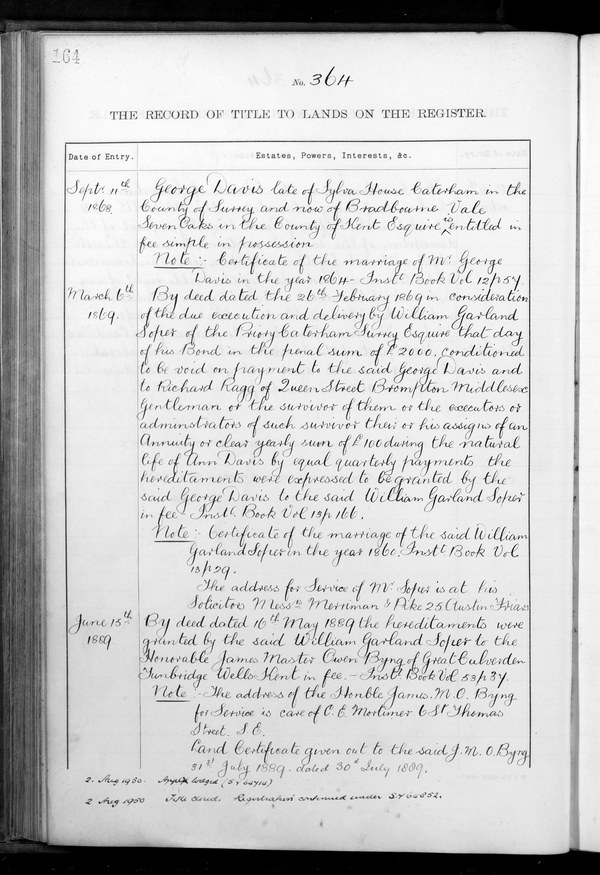 164
No. 364
THE RECORD OF TITLE TO LANDS ON THE REGISTER.
Date of Entry. Estates, Powers, Interests, &c.
Septr. 11th 1868 George Davis late of Sylva House Caterham in the
County of Surrey and now of Bradbourne Vale
Seven Oaks in the County of Kent Esquire is entitled in
fee simple in possession
Note :- Certificate of the marriage of Mr. George
Davis in the year 1864 - Instt. Book Vol 12 p 57.
March 6th 1869. By deed dated the 26th February 1869 in consideration
of the due execution and delivery by William Garland
Soper of the Priory Caterham Surrey Esquire that day
of his Bond in the penal sum of £2000. conditioned
to be void on payment to the said George Davis and
to Richard Ragg of Queen Street Brompton Middlesex
Gentleman or the survivor of them or the executors or
adminstrators of such survivor their or his assigns of an
Annuity or clear yearly sum of £100 during the natural
life of Ann Davis by equal quarterly payments the
hereditaments were expressed to be granted by the
said George Davis to the said William Garland Soper
in fee - Instt. Book Vol 13 p 166.
Note :- Certificate of the marriage of the said William
Garland Soper in the year 1860. Instt Book Vol
13 p 29.
The address for Service of Mr. Soper is at his
Solicitors Messrs Merriman & Pike 25 Austin Friars
June 15th 1889 By deed dated 16th May 1889 the hereditaments were
granted by the said William Garland Soper to the
Honorable James Master Owen Byng of Great Culverden
Tunbridge Wells Kent in fee. - Instt. Book Vol 53 p 37.
Note :- The address of the Honble James. M. O. Byng
for Service is care of C. E. Mortimer 6 St. Thomas
Street. S. E.
Land Certificate given out to the said J. M. O. Byng
31st July 1889. dated 30th July 1889.
2. Aug 1950. lodged
2 Aug 1950 Title closed. Registration continued under SY 66852.